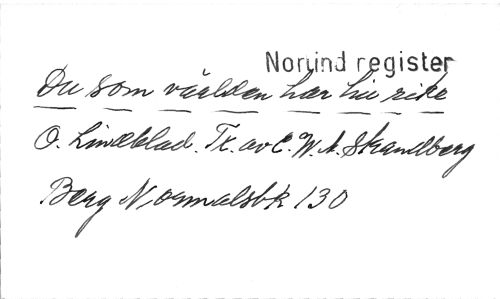 Norlind register
Du som världen har till rike
O. Lindblad. Tx. av C. W. A. Strandberg
Berg Normalsbk 130